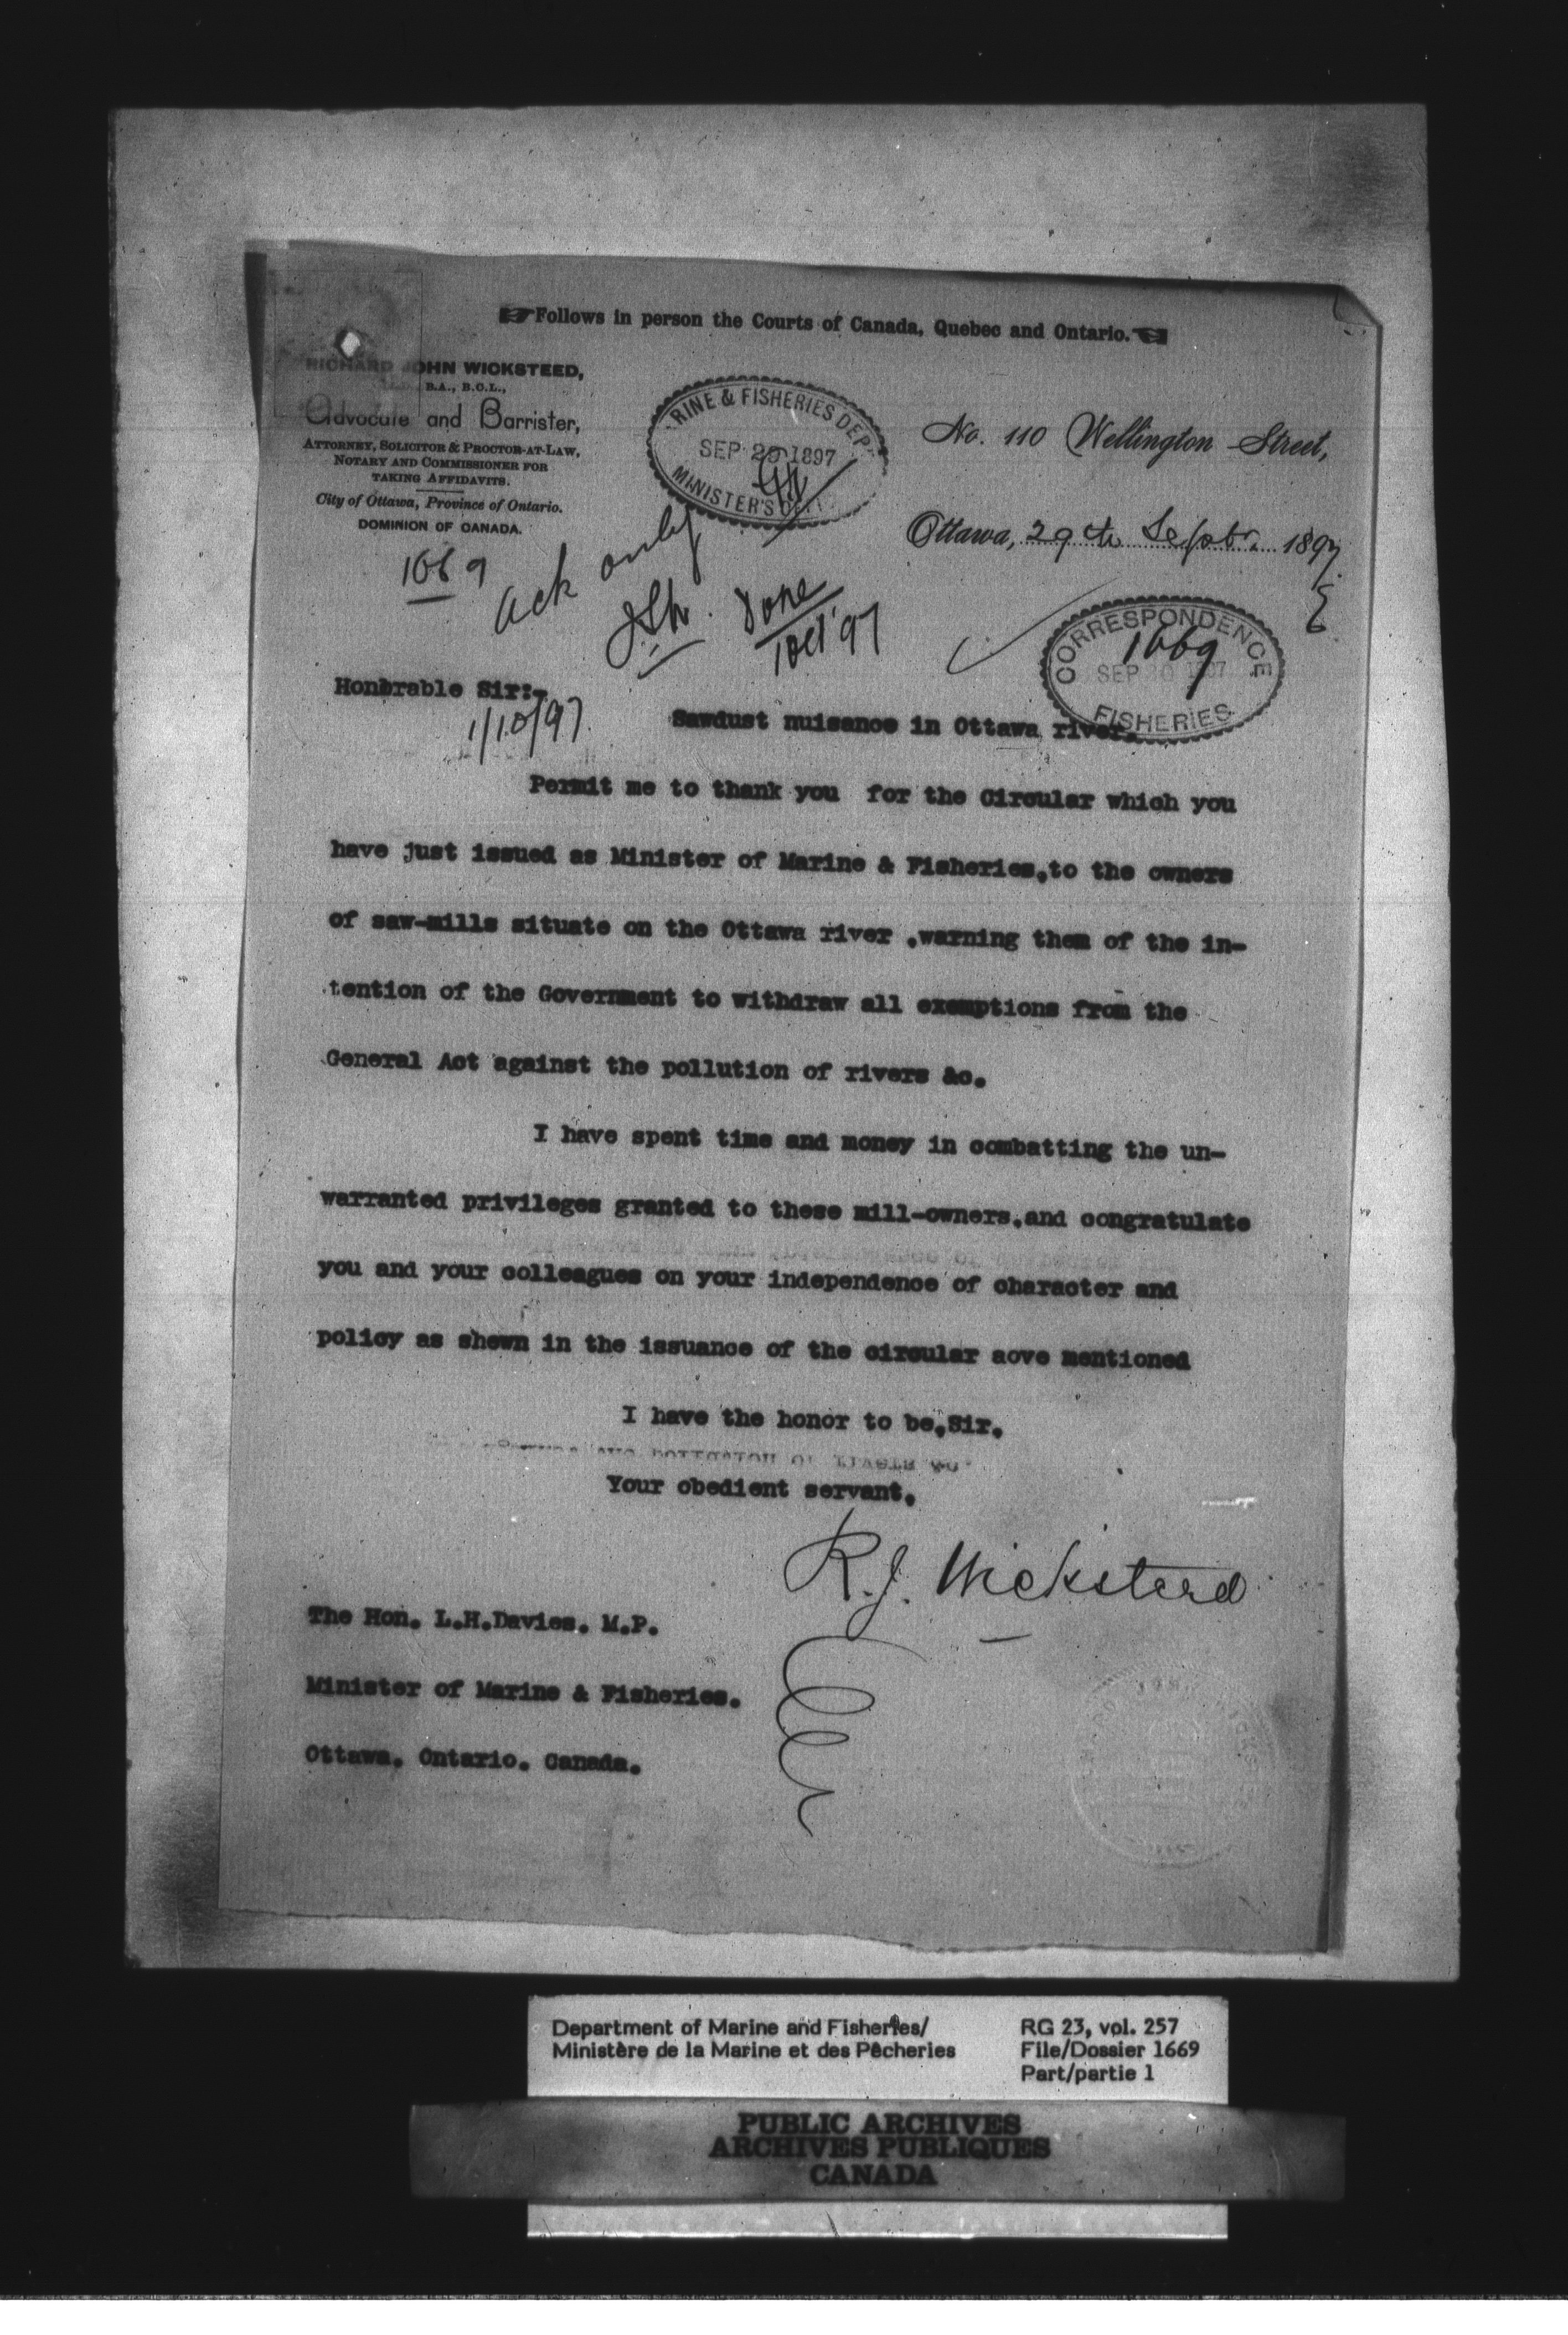 Follows in person the Courts of Canada, Quebec and Ontario.
RICHARD JOHN WICKSTEED,
B.A., B.C.L.,
Advocate and Barrister,
ATTORNEY, SOLICITOR & PROCTOR-AT-LAW,
NOTARY AND COMMISSIONER FOR
TAKING AFFIDAVITS.
City of Ottawa, Province of Ontario.
DOMINION OF CANADA.
RINE & FISHERIES DEP
SEP 29 1897
MINISTER'S
No. 110 Wellington Street,
Ottawa, 29th Septbr. 1897
1669
ack only
Done
1 Oct '97
CORRESPONDENCE
1669
SEP 30 1897
FISHERIES
Honorable Sir:-
1/10/97.
Sawdust nuisance in Ottawa river.
Permit me to thank you for the Circular which you
have just issued as Minister of Marine & Fisheries,to the owners
of saw-mills situate on the Ottawa river ,warning them of the in-
tention of the Government to withdraw all exemptions from the
General Act against the pollution of rivers &c.
I have spent time and money in combatting the un-
warranted privileges granted to these mill-owners,and congratulate
you and your colleagues on your independence of character and
policy as shewn in the issuance of the circular aove mentioned
I have the honor to be,Sir,
Your obedient servant,
R.J. Wicksteed
The Hon. L.H.Davies. M.P.
Minister of Marine & Fisheries.
Ottawa. Ontario. Canada.
Department of Marine and Fisheries/
Ministère de la Marine et des Pêcheries
RG 23, vol. 257
File/Dossier 1669
Part/partie 1
PUBLIC ARCHIVES
ARCHIVES PUBLIQUES
CANADA